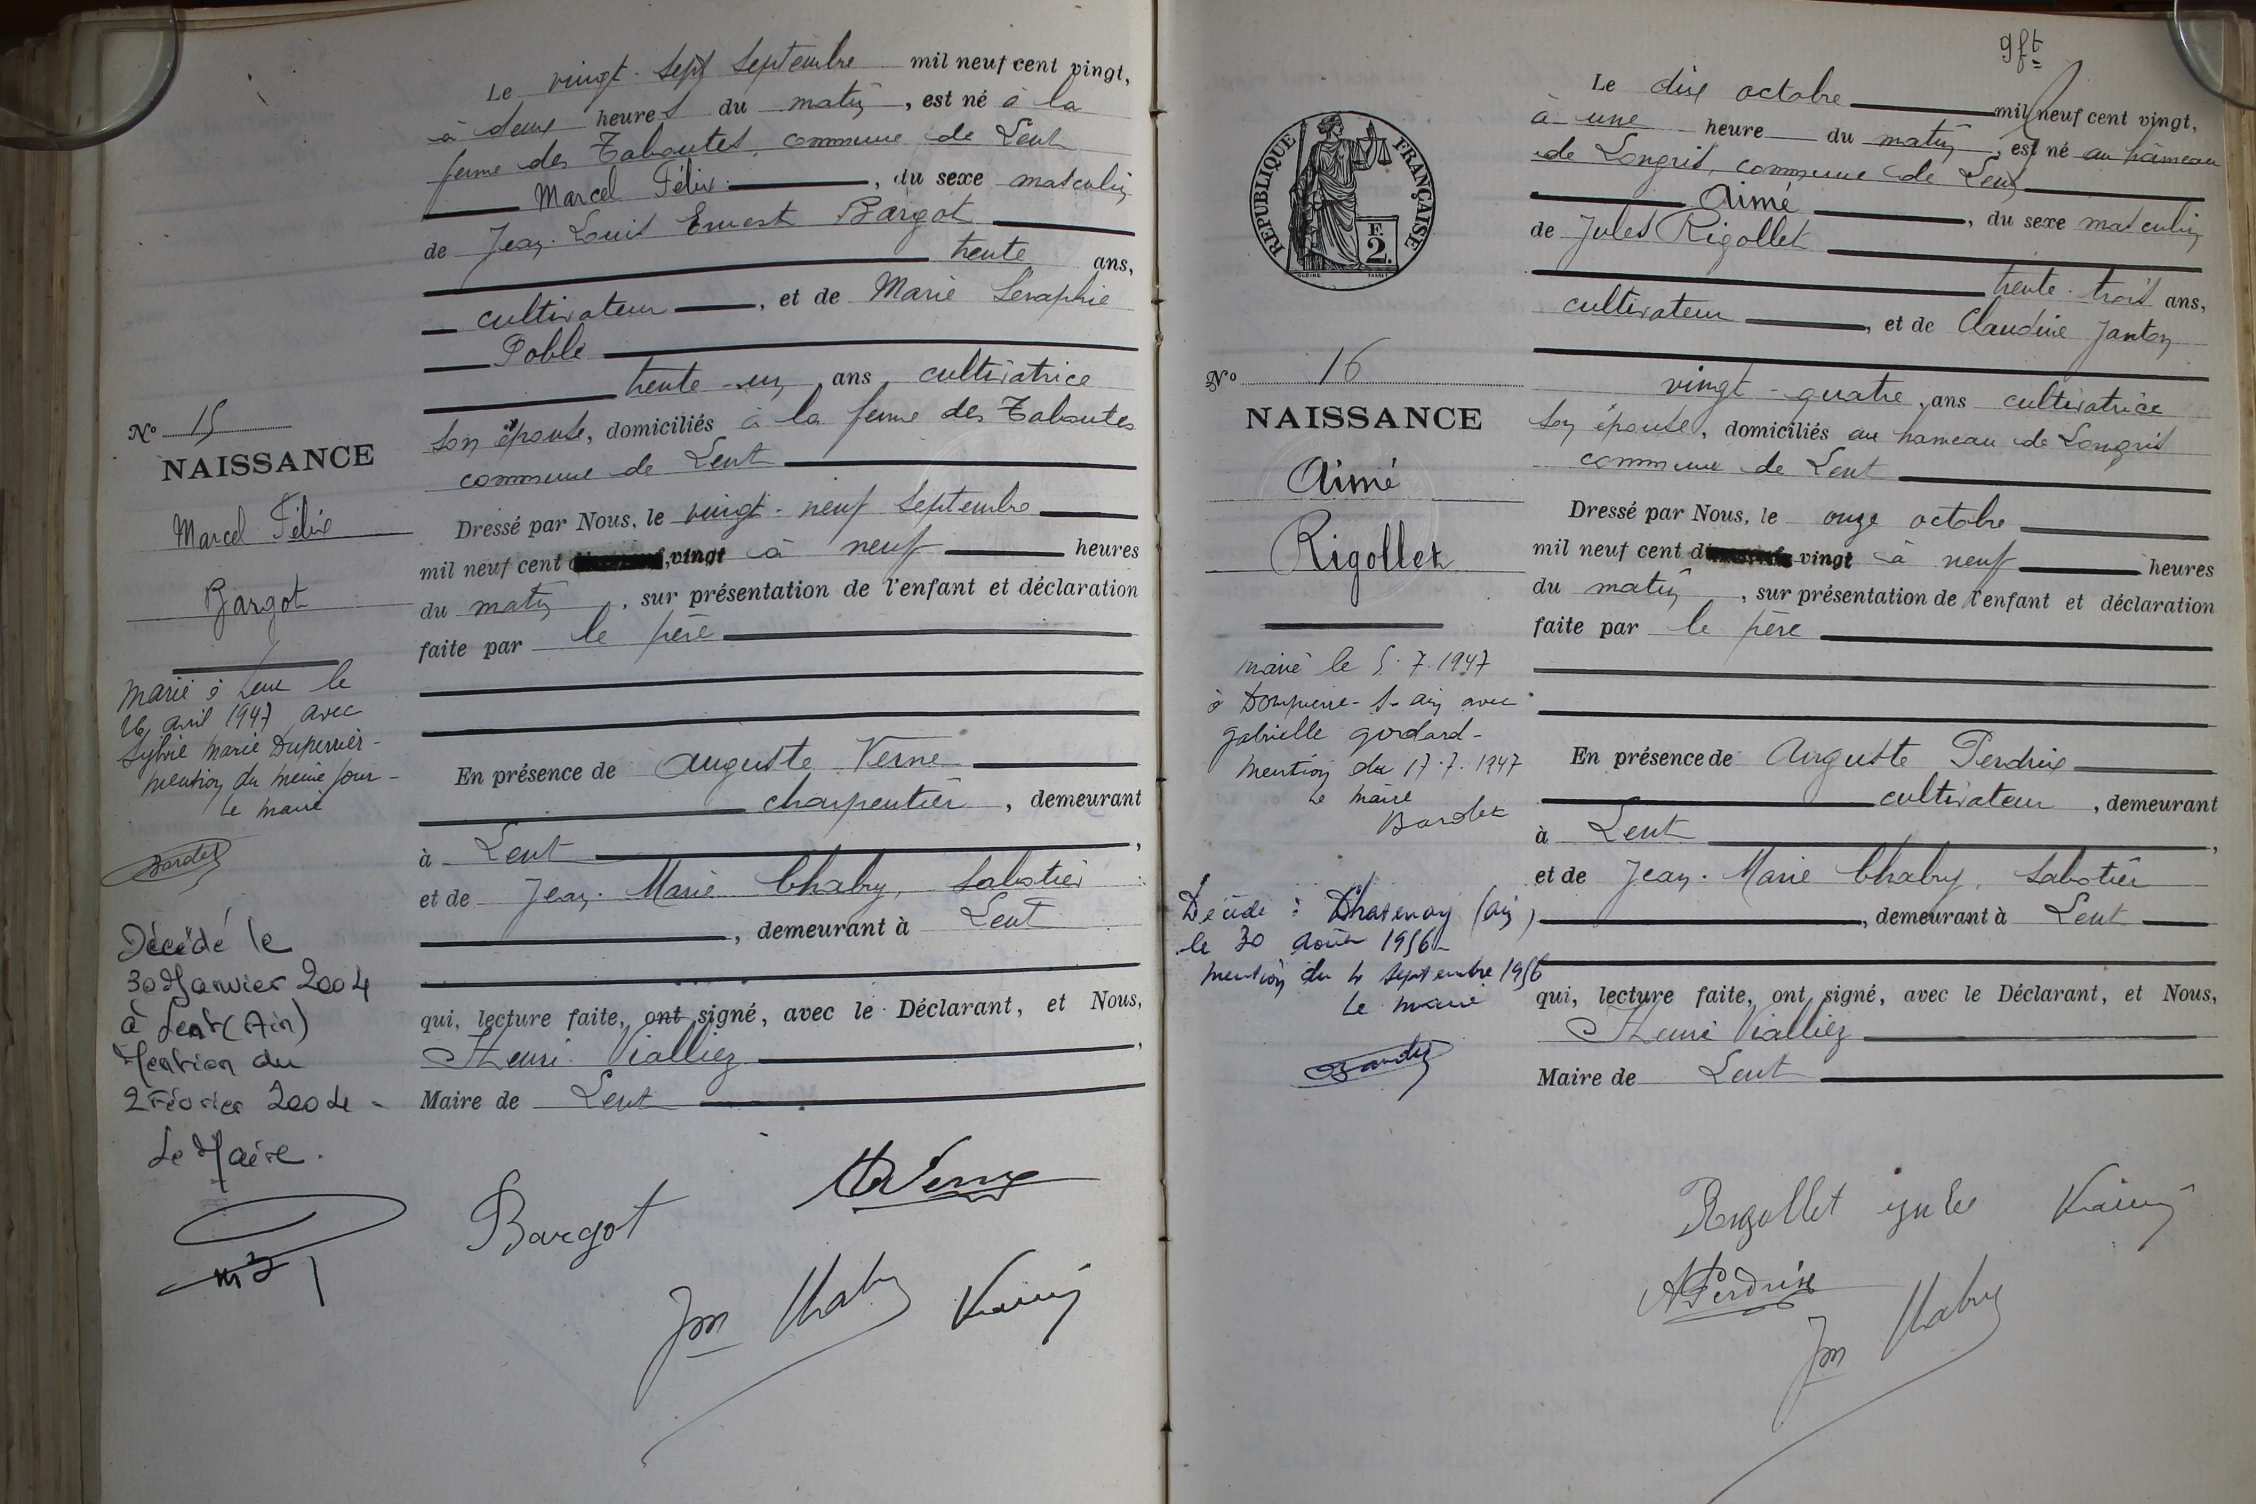 Le vingt-sept Septembre mil neuf cent vingt,
à deux heures du matin, est né à la
ferme des Taboutes, commune de Lent
Marcel Félix, du sexe masculin
de Jean-Louis Ernest Bargot
trente ans,
cultivateur, et de Marie Séraphie
Poble
trente-un ans cultivatrice
Son épouse, domiciliés à la ferme des Taboutes
commune de Lent
Dressé par Nous, le vingt-neuf Septembre
mil neuf cent vingt à neuf heures
du matin, sur présentation de l'enfant et déclaration
faite par le père
En présence de Auguste Verne
charpentier, demeurant
à Lent,
et de Jean-Marie Chabry, Sabotier
, demeurant à Lent
qui, lecture faite, ont signé, avec le Déclarant, et Nous,
Henri Vialliez,
Maire de Lent
N° 15
NAISSANCE
Marcel Félix
Bargot
Marié à Lent le
26 avril 1947 avec
Sylvie Marie Duperrier-
mention du même jour-
Le maire
Décédé le
30 Janvier 2004
à Lent (Ain)
Mention du
2 Février 2004-
Le Maire.
Bargot
A Verne
Jm Chabry
9 ft
Le dix octobre mil neuf cent vingt,
à une heure du matin, est né au hameau
de Longris, commune de Lent
Aimé, du sexe masculin
de Jules Rigollet
trente-trois ans,
cultivateur, et de Claudine Janton
vingt-quatre ans cultivatrice
Son épouse, domiciliés au hameau de Longris
commune de Lent
Dressé par Nous, le onze octobre
mil neuf cent vingt à neuf heures
du matin, sur présentation de l'enfant et déclaration
faite par le père
En présence de Auguste Perdrix
cultivateur, demeurant
à Lent,
et de Jean-Marie Chabry, Sabotier
, demeurant à Lent
qui, lecture faite, ont signé, avec le Déclarant, et Nous,
Henri Vialliez
Maire de Lent
RÉPUBLIQUE FRANÇAISE
F.
2.
N° 16
NAISSANCE
Aimé
Rigollet
marié le 5.7.1947
à Dompierre-s-ain avec
gabrielle godard-
mention du 17.7.1947
Le maire
Décédé à Chatenay (ain)
le 30 août 1956-
mention du 4 septembre 1956
Le maire
Rigollet jules
A Perdrix
Jm Chabry